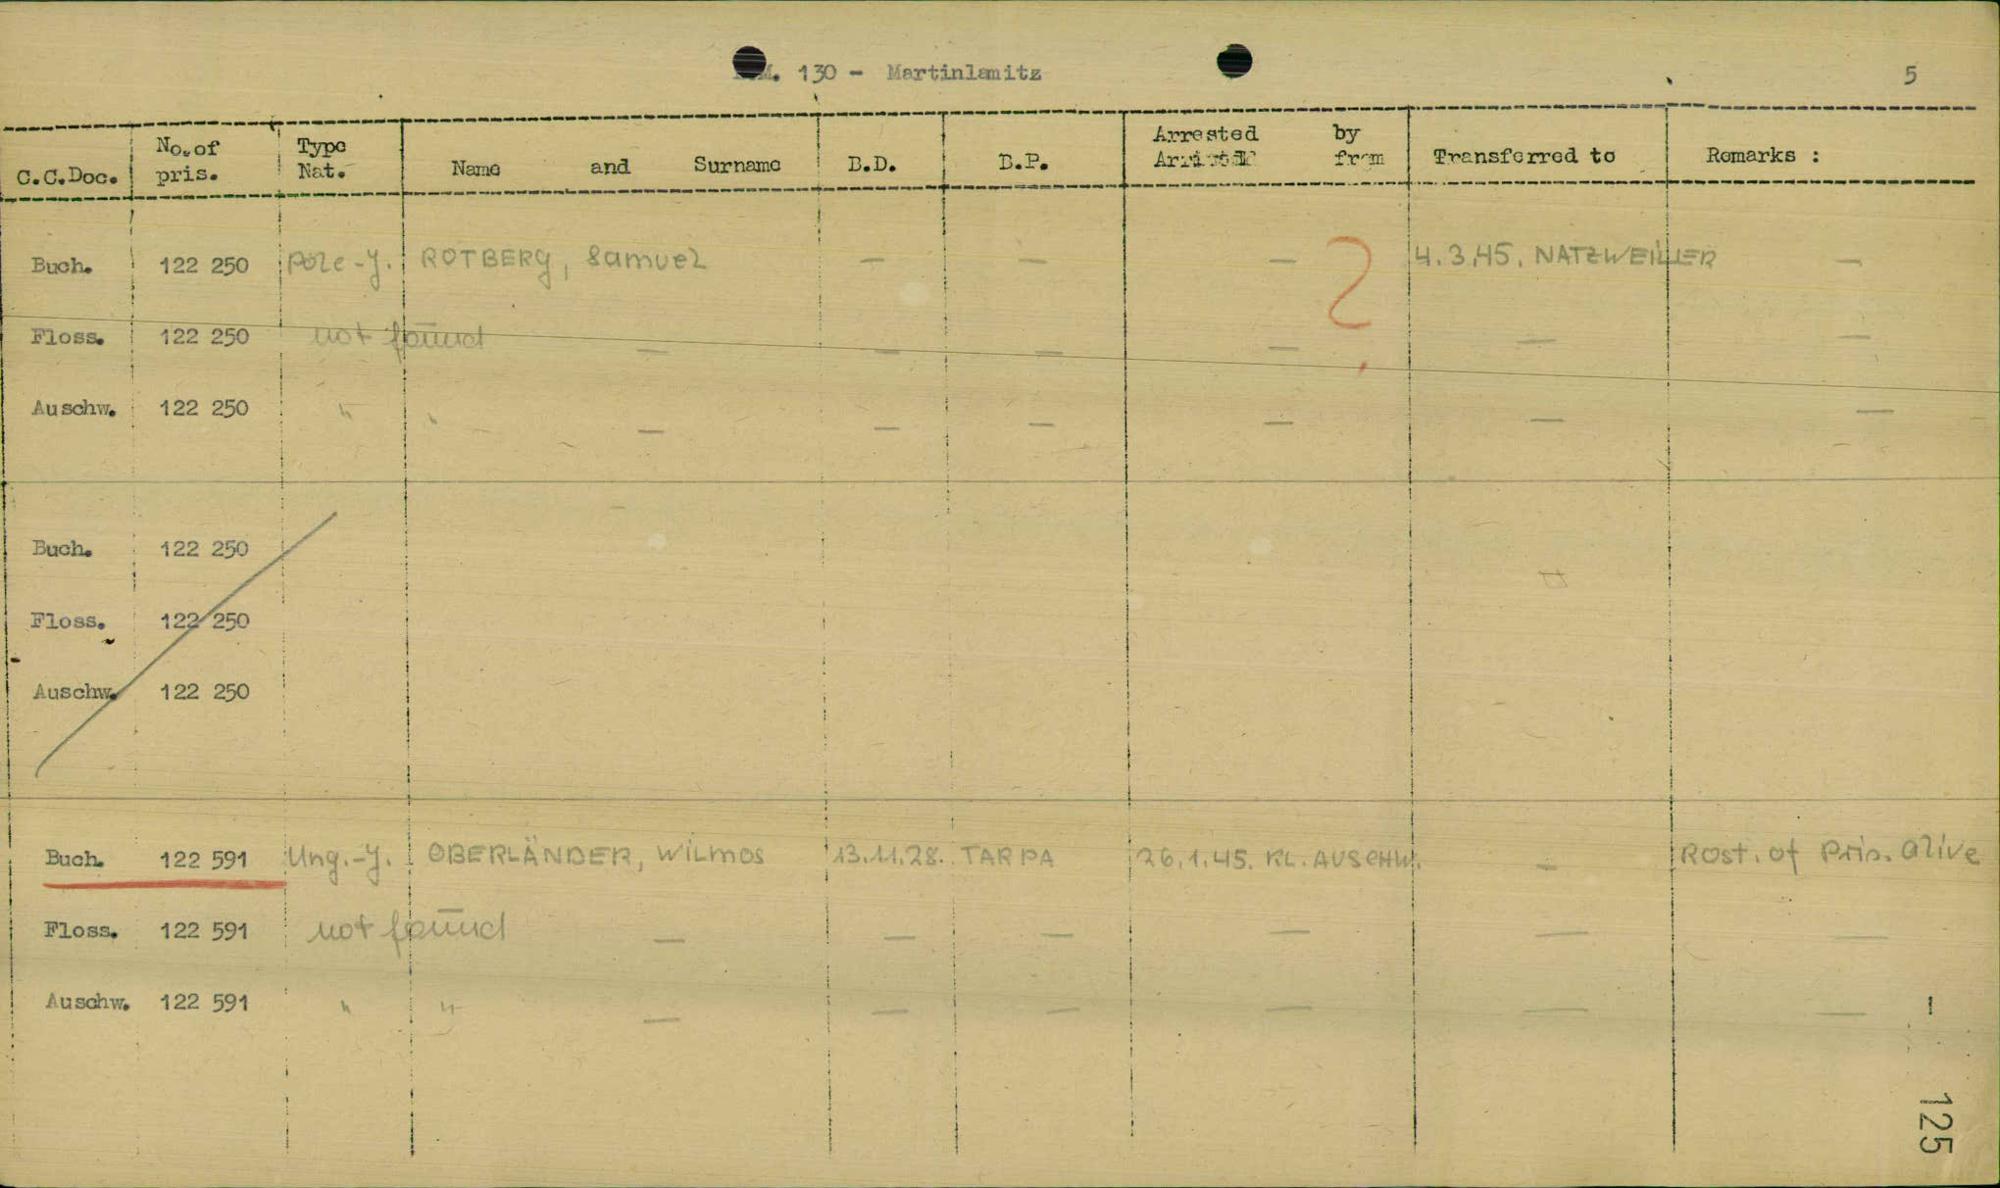 M. 130 - Martinlamitz 5
C.C.Doc. No.of pris. Type Nat. Name and Surname B.D. B.P. Arrested by from Transferred to Remarks :
Buch. 122 250 Pole-J. ROTBERG, Samuel — — — ? 4.3.45. NATZWEILLER —
Floss. 122 250 not found — — — — — —
Auschw. 122 250 " " — — — — — —
Buch. 122 250
Floss. 122 250
Auschw. 122 250
Buch. 122 591 Ung.-J. OBERLÄNDER, Wilmos 13.11.28. TARPA 26.1.45. KL. AUSCHW. — Rost. of Pris. alive
Floss. 122 591 not found — — — — — —
Auschw. 122 591 " " — — — — — —
125